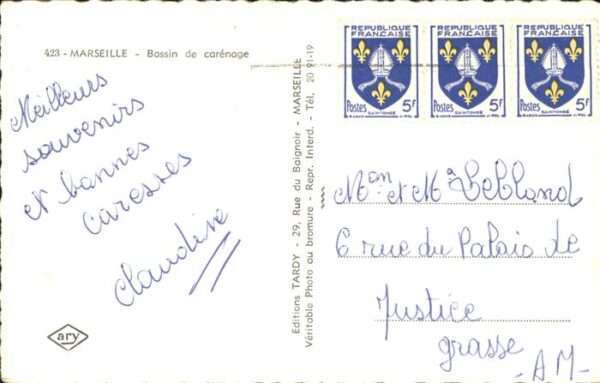 423 - MARSEILLE - Bassin de carénage
Meilleurs
souvenirs
et bonnes
caresses
Claudine
ary
Editions TARDY - 29, Rue du Baignoir - MARSEILLE - Tél. 20 91-19
Véritable Photo au bromure - Repr. Interd.
REPUBLIQUE
FRANÇAISE
Postes 5F
SAINTONGE
REPUBLIQUE
FRANÇAISE
Postes 5F
SAINTONGE
REPUBLIQUE
FRANÇAISE
Postes 5F
SAINTONGE
Mon et Me Leblond
6 rue du Palais de
Justice
grasse
- A.M -